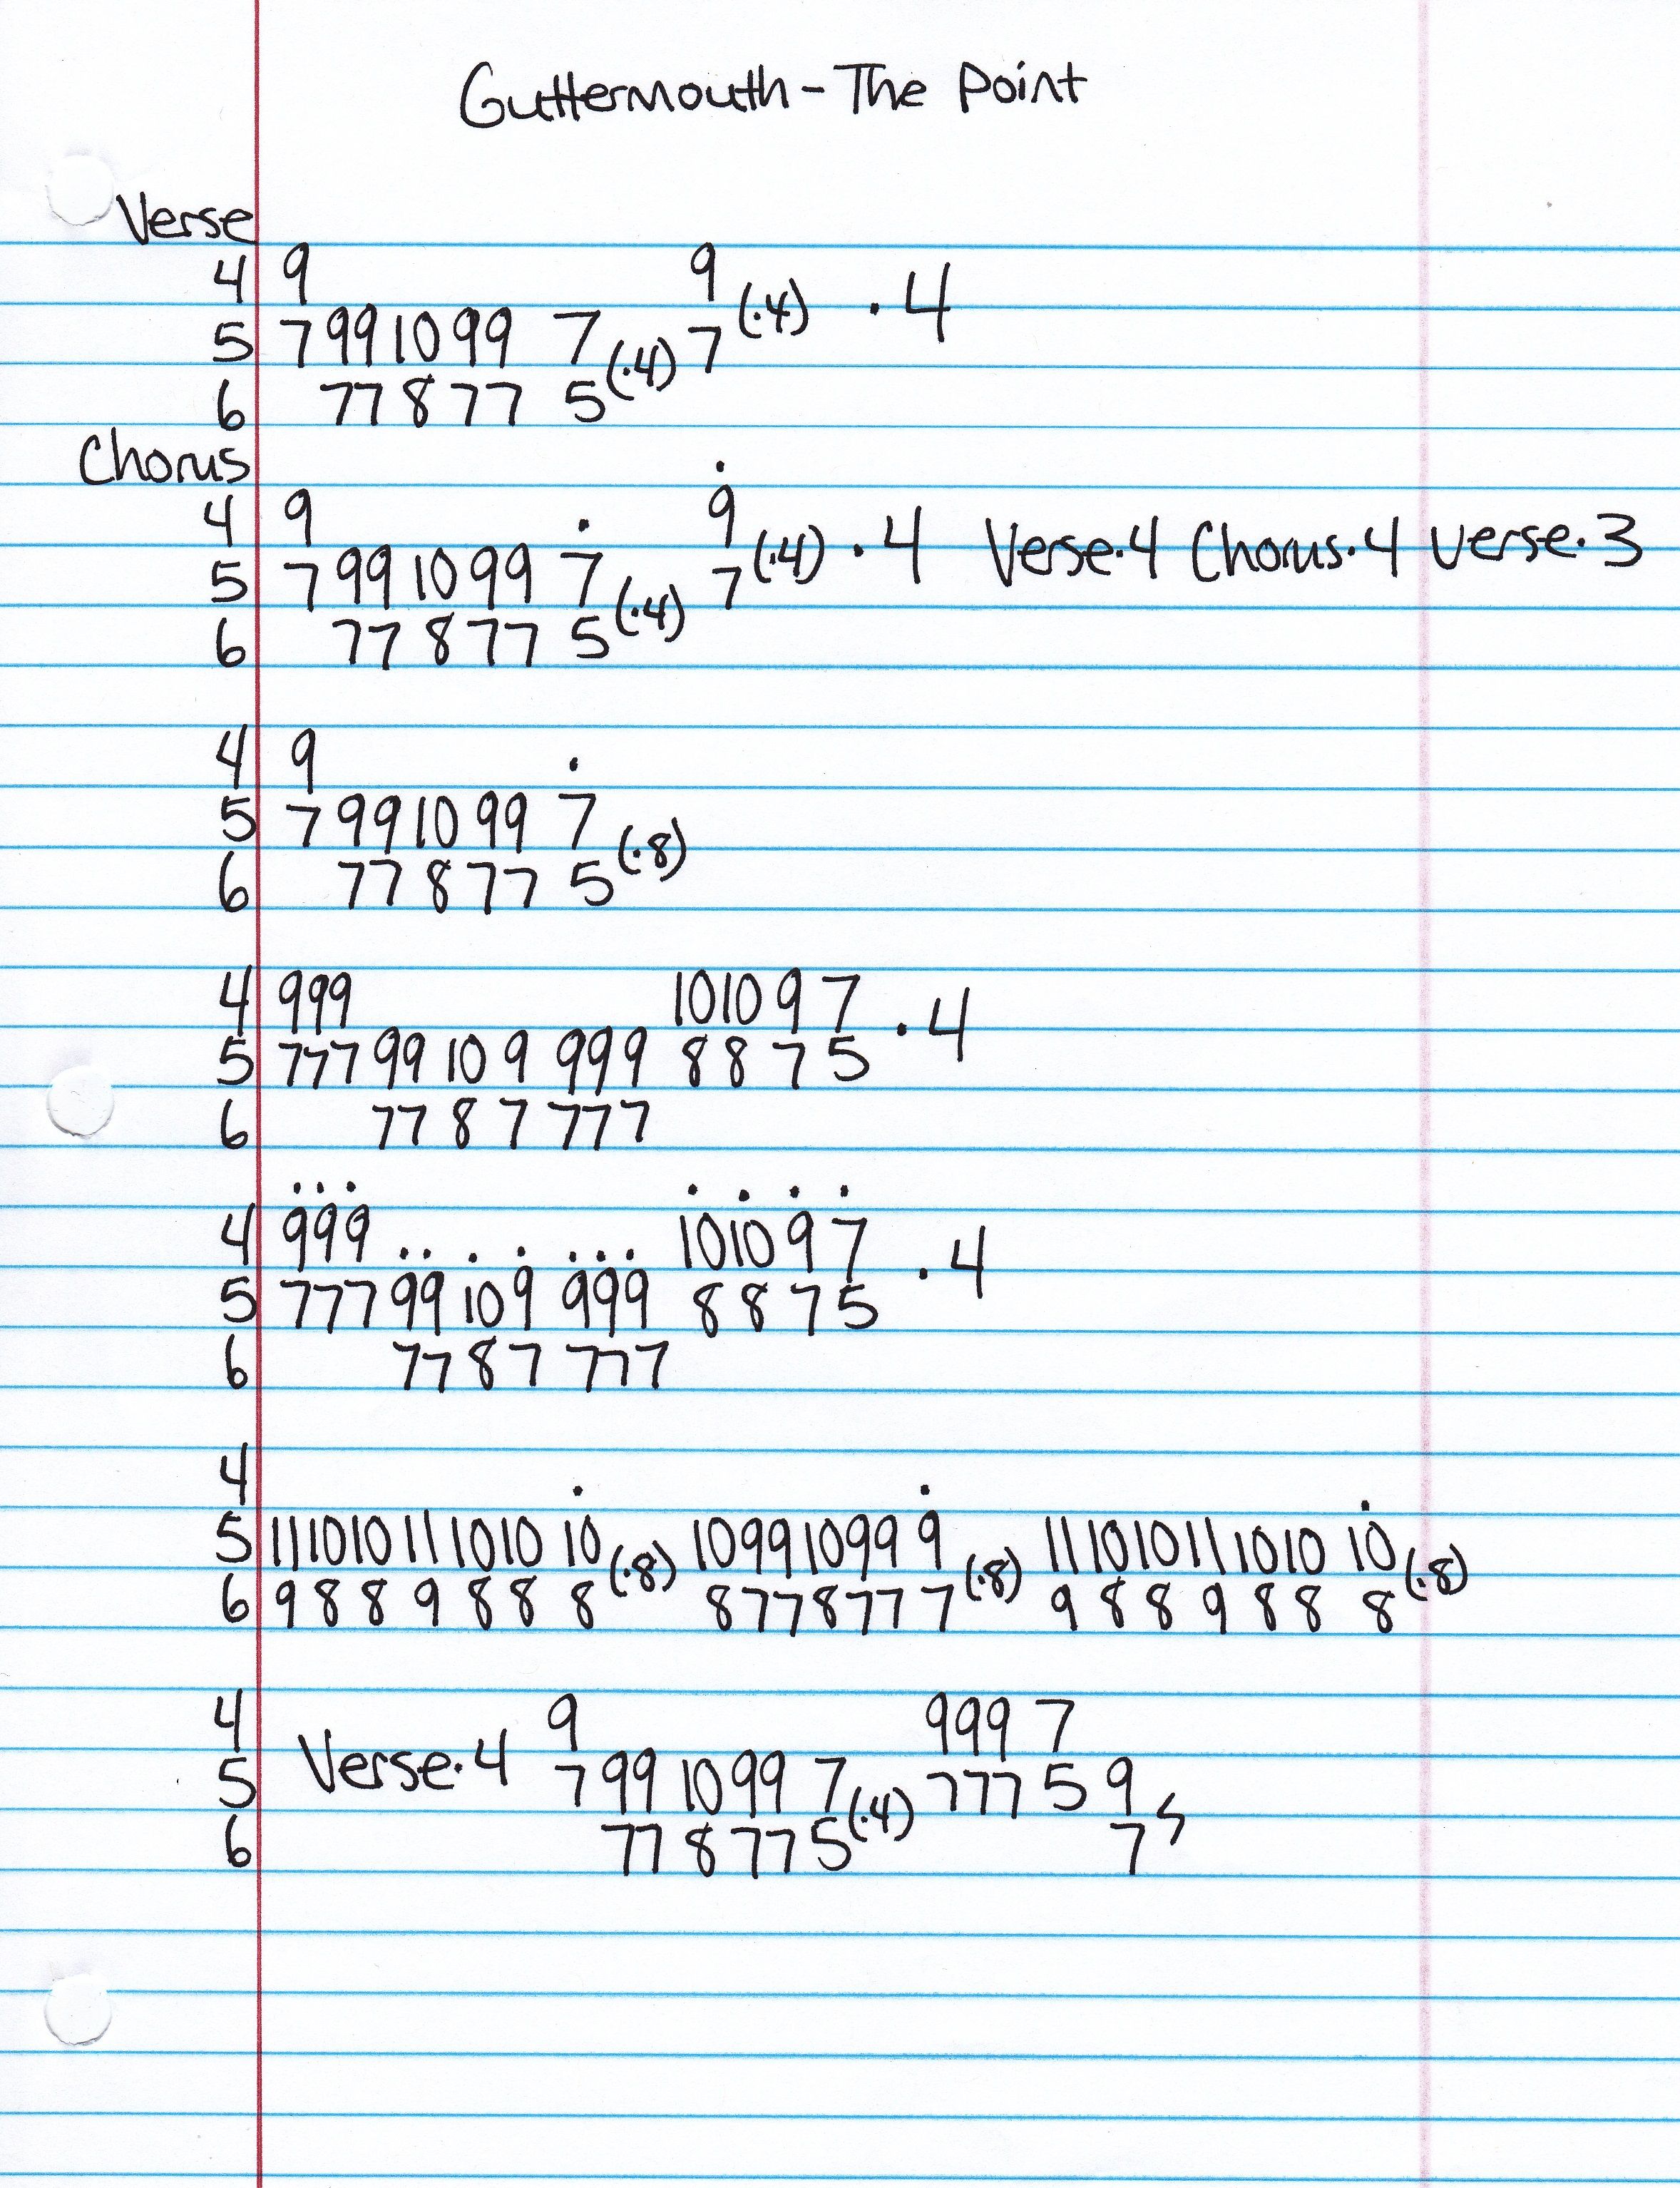 Guttermouth - The Point
Verse
4 9 9
5 7 99 10 99 7 (·4) 7 (·4) · 4
6 77 8 77 5
Chorus
4 9 9
5 7 99 10 99 7 (·4) 7 (·4) · 4 Verse·4 Chorus·4 Verse·3
6 77 8 77 5
4 9
5 7 99 10 99 7 (·8)
6 77 8 77 5
4 999 1010 9 7
5 777 99 10 9 999 8 8 7 5 · 4
6 77 8 7 777
4 999 1010 9 7
5 777 99 10 9 999 8 8 7 5 · 4
6 77 8 7 777
4
5 11 10 10 11 10 10 10 (·8) 10 9 9 10 9 9 9 (·8) 11 10 10 11 10 10 10 (·8)
6 9 8 8 9 8 8 8 8 7 7 8 7 7 7 9 8 8 9 8 8 8
4 9 999 7
5 Verse·4 7 99 10 99 7 (·4) 777 5 9
6 77 8 77 5 7